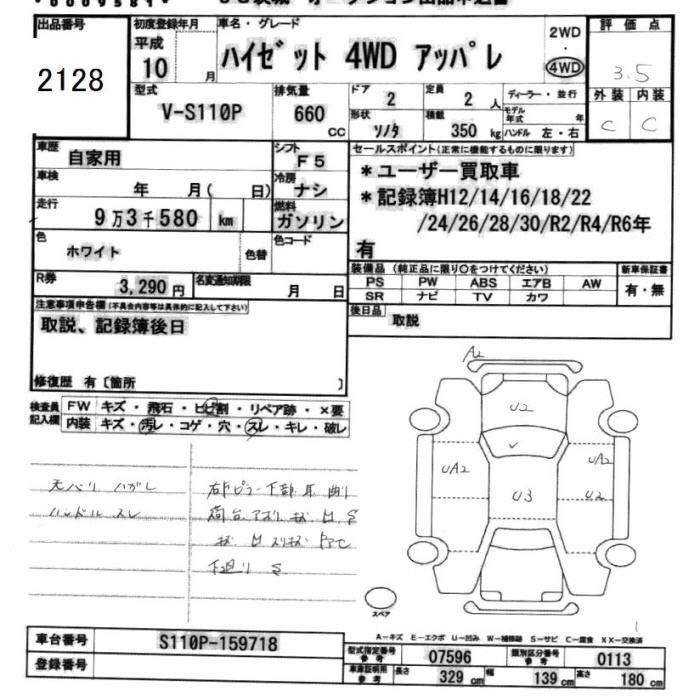 出品番号
2128
初度登録年月
平成
10 月
車名・グレード
ハイゼット 4WD アッパレ
2WD
・
4WD
評価点
3.5
外装 内装
C C
型式
V-S110P
排気量
660
CC
ドア
2
形状
ソノタ
定員
2 人
積載
350 kg
ディーラー・並行
モデル
年式 年
ハンドル 左・右
車歴
自家用
シフト
F5
車検
年 月( 日)
冷房
ナシ
走行
9万3千580 km
燃料
ガソリン
色
ホワイト
色替
色コード
R券
3,290 円
名変通知期限
月 日
セールスポイント(正常に機能するものに限ります)
*ユーザー買取車
*記録簿H12/14/16/18/22
/24/26/28/30/R2/R4/R6年
有
装備品(純正品に限り○をつけてください)
PS PW ABS エアB AW
SR ナビ TV カワ
新車保証書
有・無
後日品
取説
注意事項申告欄(不具合内容等は具体的に記入して下さい)
取説、記録簿後日
修復歴 有〔箇所 〕
検査員
記入欄
FW キズ・飛石・ヒビ割・リペア跡・×要
内装 キズ・汚レ・コゲ・穴・スレ・キレ・破レ
天バリ ハガレ
ハンドル スレ
下廻り S
A2
U2
UA2
U3
UA2
U2
スペア
A-キズ E-エクボ U-凹み W-補修跡 S-サビ C-腐食 XX-交換済
車台番号
S110P-159718
登録番号
型式指定番号
参考
07596
類別区分番号
参考
0113
車庫証明用
参考
長さ
329 cm
幅
139 cm
高さ
180 cm